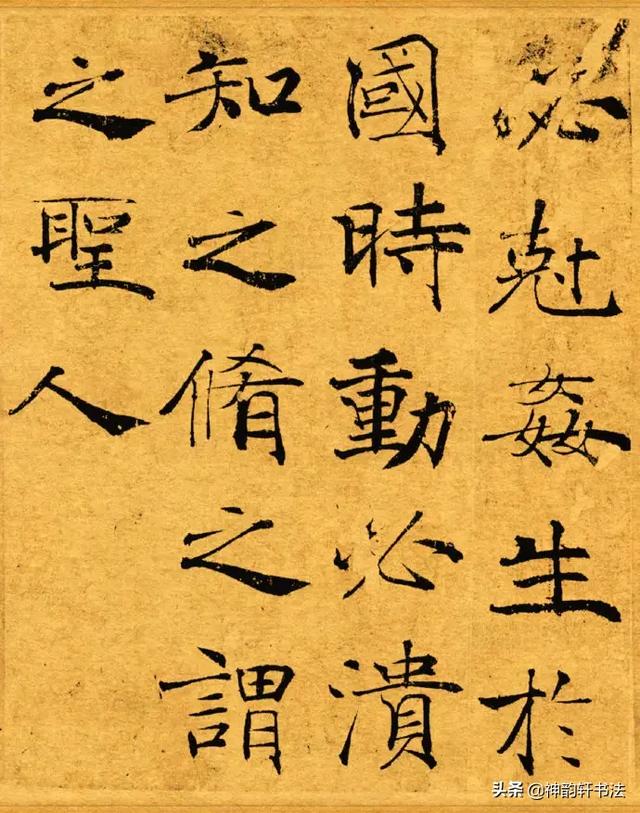 必尅姦生於
國時動必潰
知之脩之謂
之聖人
头条 @神韵轩书法